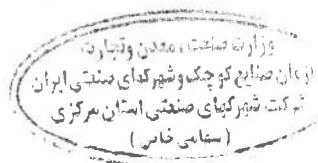 وزارت صنعت، معدن و تجارت
سازمان صنایع کوچک و شهرکهای صنعتی ایران
شرکت شهرکهای صنعتی استان مرکزی
( سهامی خاص )